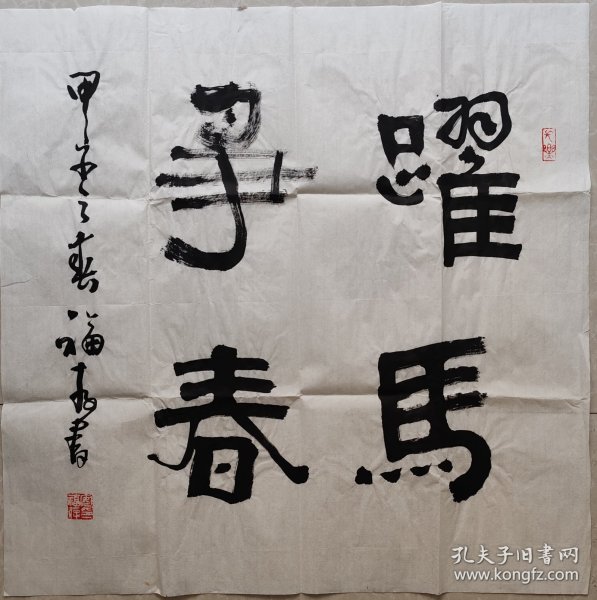 躍馬
爭春
甲午之春福春書
孔夫子旧书网
www.kongfz.com